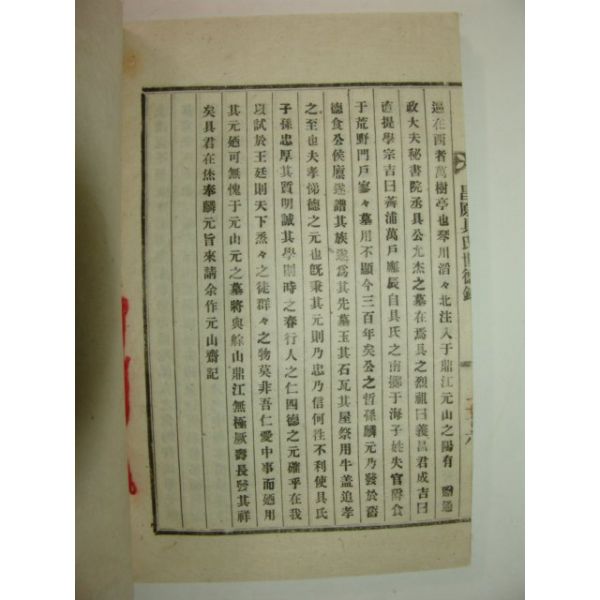 逼在西者萬樹亭也琴川滔々北注入于鼎江元山之陽有 贈通
政大夫秘書院丞具公允杰之墓在焉具之烈祖曰義昌君成吉曰
直提學宗吉曰善浦萬戶 自具氏之南 于海子姓失官 食
于荒野門戶寥々墓用不顯今三百年矣公之哲孫麟元乃發於
德食公侯 遂譜其族遂爲其先墓玉其石瓦其屋祭用牛盖追孝
之至也夫孝悌德之元也旣秉其元則乃忠乃信何往不利使具氏
子孫忠厚其質明誠其學則時之春行人之仁四德之元確乎在我
以試於王廷則天下烝々之徒群々之物莫非吾仁愛中事而廼用
其元廼可無愧于元山元之墓將與 山鼎江無極厥壽長發其祥
矣具君在烋奉麟元旨來請余作元山齋記
具氏世德錄